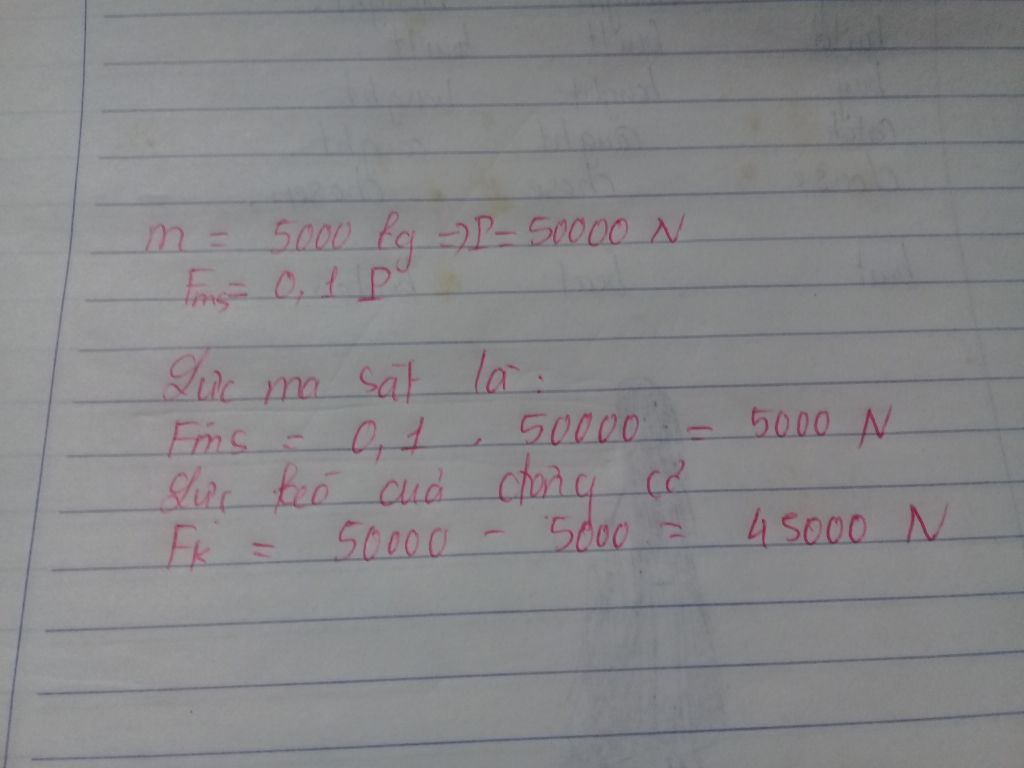 m = 5000 kg => P = 50000 N
Fms = 0,1 P
Lực ma sát là:
Fms = 0,1 . 50000 = 5000 N
Lực kéo của động cơ
Fk = 50000 - 5000 = 45000 N